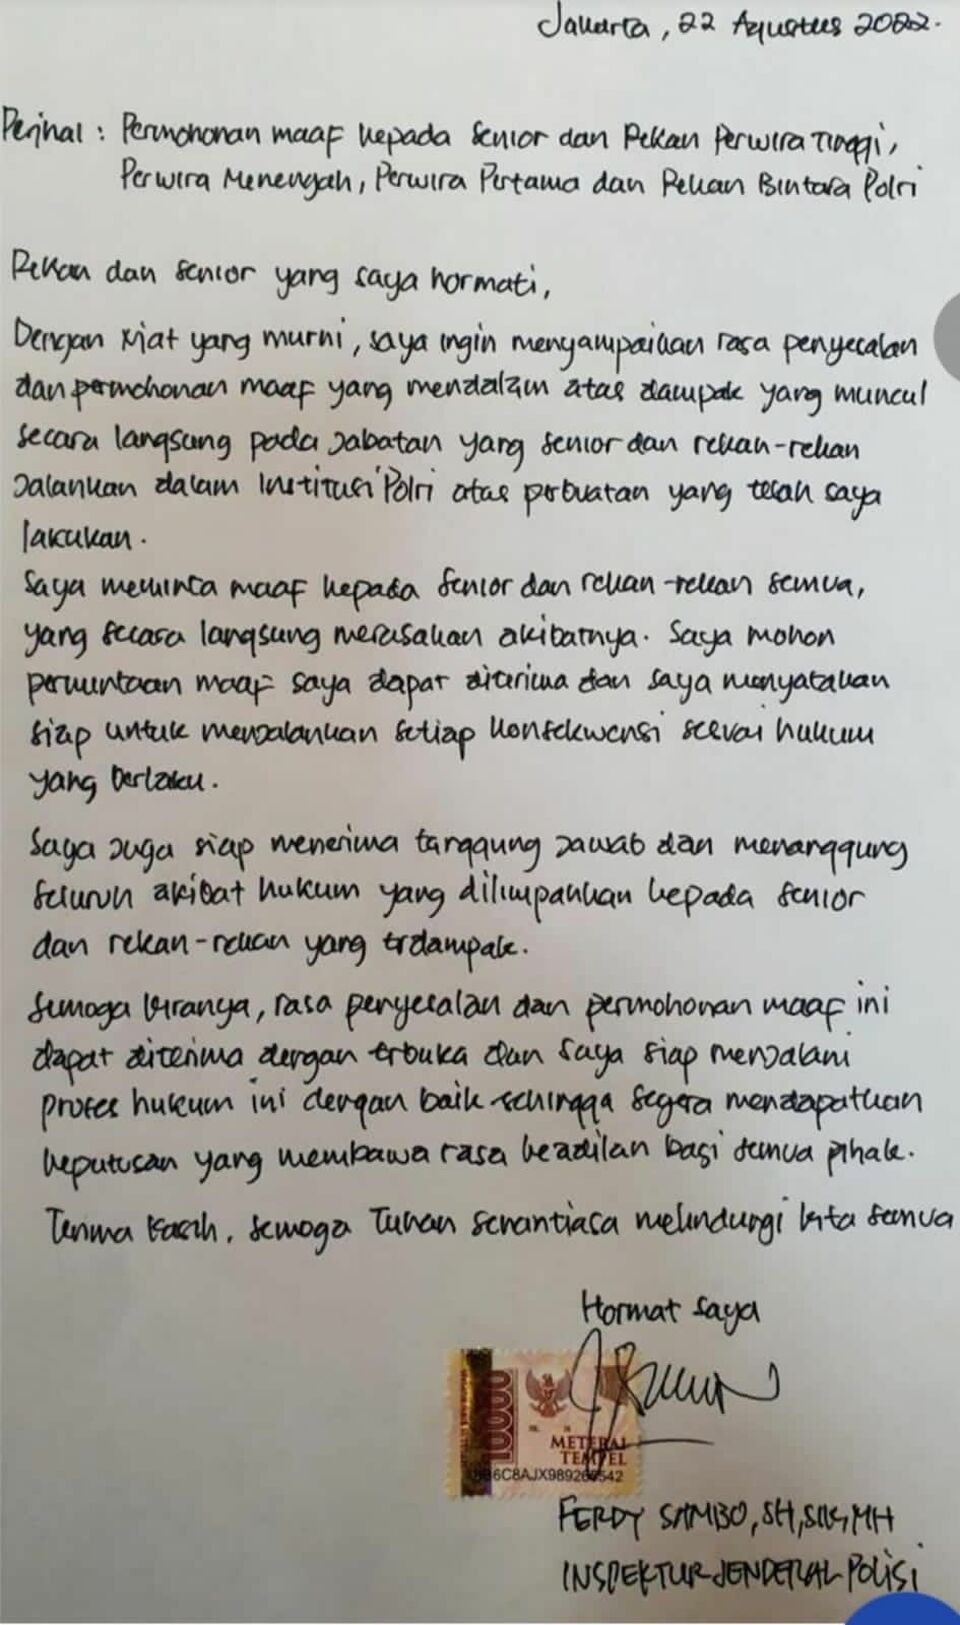 Jakarta, 22 Agustus 2022.
Perihal : Permohonan maaf kepada Senior dan Rekan Perwira Tinggi,
Perwira Menengah, Perwira Pertama dan Rekan Bintara Polri
Rekan dan senior yang saya hormati,
Dengan niat yang murni, saya ingin menyampaikan rasa penyesalan
dan permohonan maaf yang mendalam atas dampak yang muncul
secara langsung pada jabatan yang senior dan rekan-rekan
jalankan dalam institusi Polri atas perbuatan yang telah saya
lakukan.
Saya meminta maaf kepada senior dan rekan-rekan semua,
yang secara langsung merasakan akibatnya. Saya mohon
permintaan maaf saya dapat diterima dan saya menyatakan
siap untuk menjalankan setiap konsekwensi sesuai hukum
yang berlaku.
Saya juga siap menerima tanggung jawab dan menanggung
seluruh akibat hukum yang dilimpahkan kepada senior
dan rekan-rekan yang terdampak.
Semoga kiranya, rasa penyesalan dan permohonan maaf ini
dapat diterima dengan terbuka dan saya siap menjalani
proses hukum ini dengan baik sehingga segera mendapatkan
keputusan yang membawa rasa keadilan bagi semua pihak.
Terima kasih, semoga Tuhan senantiasa melindungi kita semua
Hormat saya
10000
METERAI
TEMPEL
FERDY SAMBO, SH, SIK, MH
INSPEKTUR JENDERAL POLISI